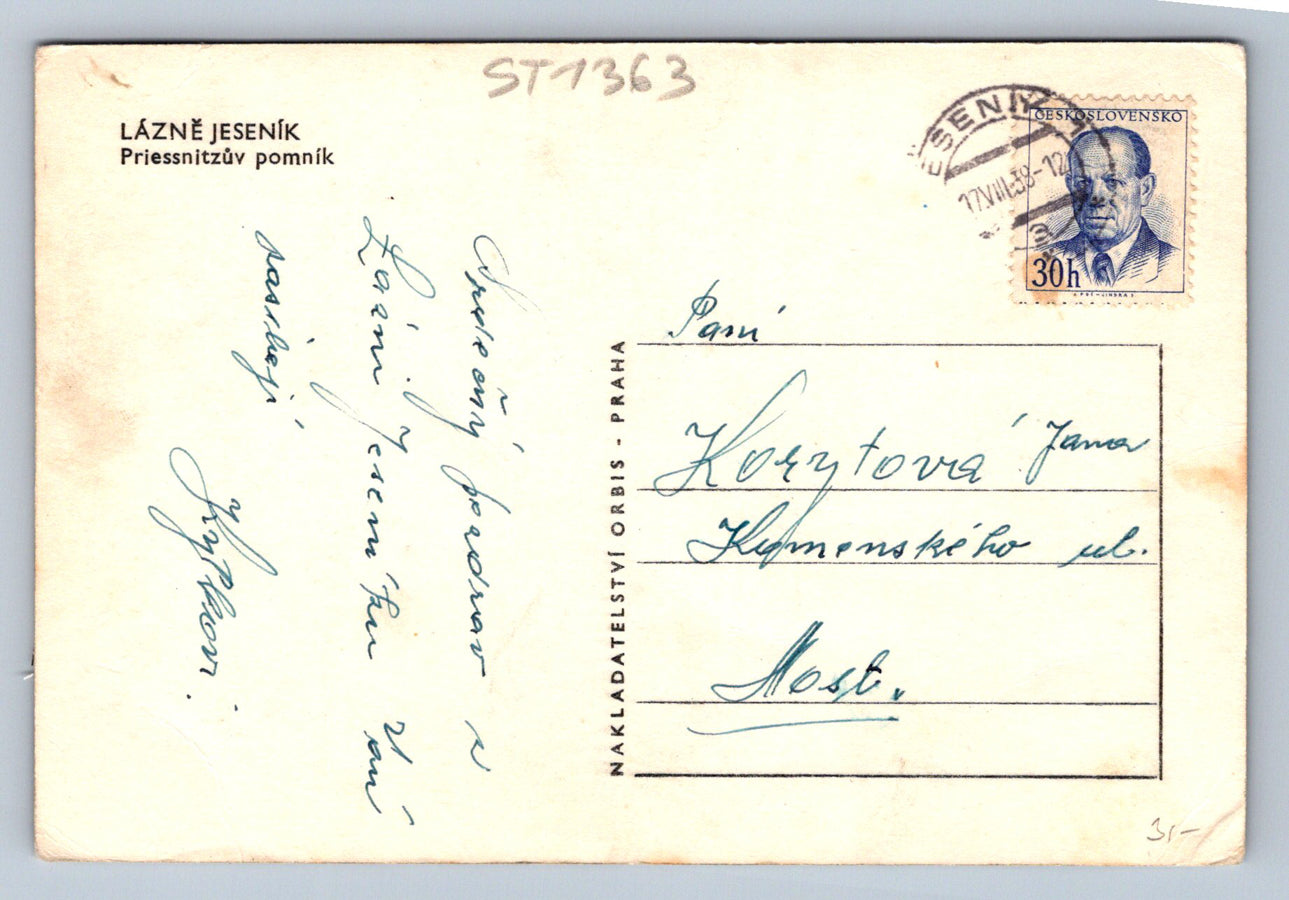 ST1363
LÁZNĚ JESENÍK
Priessnitzův pomník
JESENÍK 1
17.VIII.58-12
ČESKOSLOVENSKO
30h
Srdečný pozdrav z
Lázní Jeseníku Vám
zasílají
NAKLADATELSTVÍ ORBIS - PRAHA
Paní
Korytová Jana
Komenského ul.
Most.